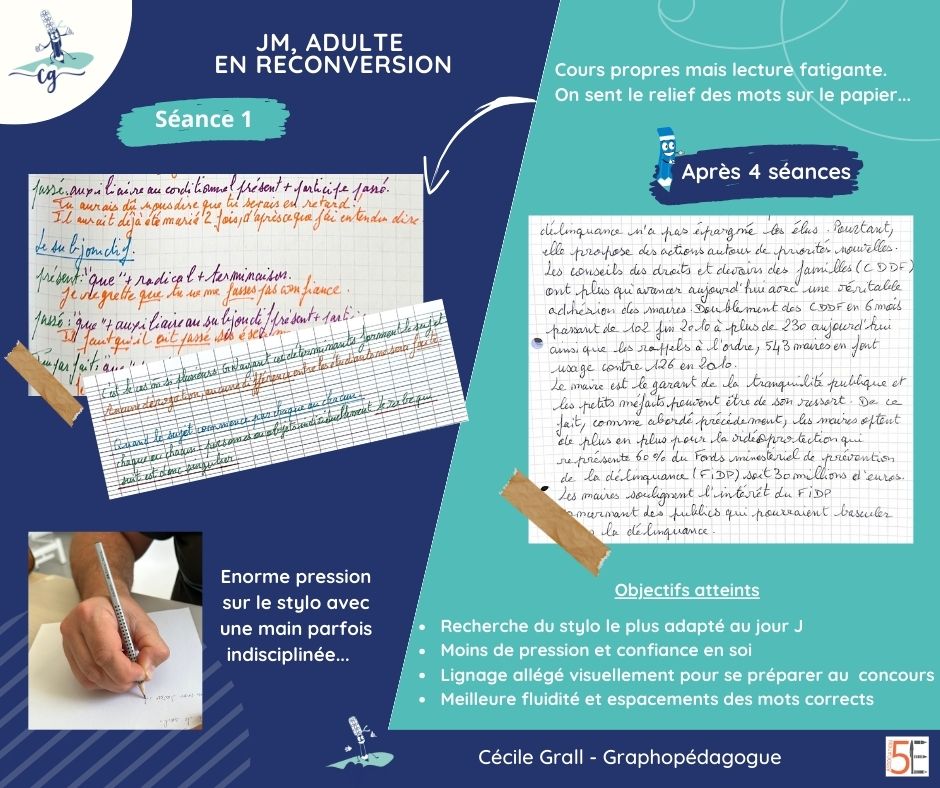 cg
JM, ADULTE
EN RECONVERSION
Séance 1
Cours propres mais lecture fatigante.
On sent le relief des mots sur le papier...
Après 4 séances
passé. auxiliaire au conditionnel présent + participe passé.
Tu aurais dû nous dire que tu serais en retard.
Il aurait déjà été marié 2 fois, d'après ce que j'ai entendu dire
Le subjonctif.
présent: "que" + radical + terminaison.
Je regrette que tu ne me fasses pas confiance.
passé: "que" + auxiliaire au subjonctif présent +
Il faut qu'il ait passé ses
C'est le cas où si plusieurs GN ayant ces déterminants forment le sujet
Aucune dérogation, aucune différence entre les étudiants ne sera faite.
Quand le sujet commence par chaque ou chacun
chaque ou chacun: personnes ou objets individuellement le verbe qui
suit est donc singulier
délinquance n'a pas épargné les élus. Pourtant,
elle propose des actions autour de priorités nouvelles.
Les conseils des droits et devoirs des familles (CDDF)
ont plus qu'avancer aujourd'hui avec une véritable
adhésion des maires. Doublement des CDDF en 6 mois
passant de 102 fin 2010 à plus de 230 aujourd'hui
ainsi que les rappels à l'ordre, 543 maires en font
usage contre 126 en 2010.
Le maire est le garant de la tranquilité publique et
les petits méfaits peuvent être de son ressort. De ce
fait, comme abordé précédemment, les maires optent
de plus en plus pour la vidéoprotection qui
représente 60% du Fonds ministériel de prévention
de la délinquance (FiDP) soit 30 millions d'euros.
Les maires soulignent l'intérêt du FiDP
concernant des publics qui pourraient basculer
la délinquance.
Enorme pression
sur le stylo avec
une main parfois
indisciplinée...
Objectifs atteints
• Recherche du stylo le plus adapté au jour J
• Moins de pression et confiance en soi
• Lignage allégé visuellement pour se préparer au concours
• Meilleure fluidité et espacements des mots corrects
Cécile Grall - Graphopédagogue
5E